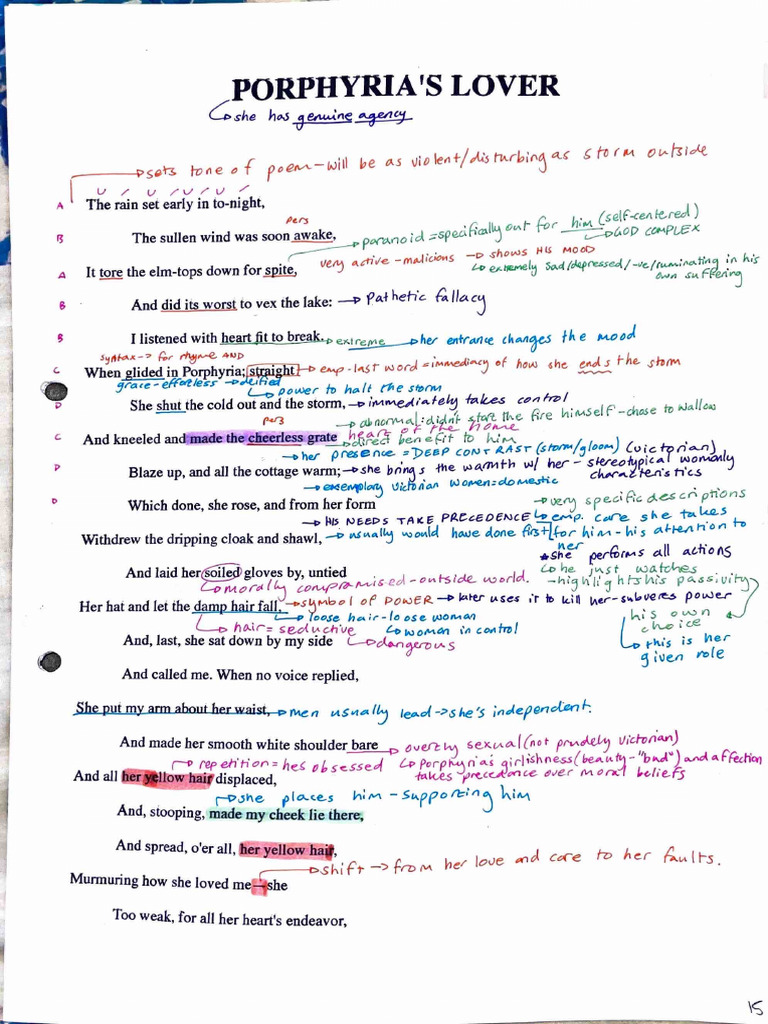 PORPHYRIA'S LOVER
she has genuine agency
sets tone of poem-will be as violent/disturbing as storm outside
A The rain set early in to-night,
pers
B The sullen wind was soon awake,
paranoid = specifically out for him (self-centered)
GOD COMPLEX
A It tore the elm-tops down for spite,
very active-malicious → shows HIS MOOD
extremely sad/depressed/-ve/ruminating in his own suffering
B And did its worst to vex the lake: → Pathetic fallacy
B I listened with heart fit to break. extreme → her entrance changes the mood
syntax → for rhyme AND
C When glided in Porphyria; straight → emp-last word = immediacy of how she ends the storm
grace-effortless → deified
power to halt the storm
D She shut the cold out and the storm, → immediately takes control
pers
abnormal: didn't start the fire himself-chose to wallow
C And kneeled and made the cheerless grate heart of the home
direct benefit to him
her presence = DEEP CONTRAST (storm/gloom) (victorian)
D Blaze up, and all the cottage warm; → she brings the warmth w/ her - stereotypical womanly characteristics
exemplary victorian women=domestic
D Which done, she rose, and from her form
very specific descriptions
HIS NEEDS TAKE PRECEDENCE emp. care she takes
Withdrew the dripping cloak and shawl, → usually would have done first/for him-his attention to her
*she performs all actions
And laid her soiled gloves by, untied
he just watches
morally compromised-outside world.
-highlights his passivity
Her hat and let the damp hair fall, → symbol of POWER → later uses it to kill her-subveres power
his own choice
loose hair-loose woman
hair = seductive
woman in control
this is her given role
And, last, she sat down by my side
dangerous
And called me. When no voice replied,
She put my arm about her waist, → men usually lead → she's independent.
And made her smooth white shoulder bare
overtly sexual (not prudely victorian)
repetition = hes obsessed
Porphyria's girlishness (beauty-"bad") and affection takes precedance over moral beliefs
And all her yellow hair displaced,
she places him - supporting him
And, stooping, made my cheek lie there,
And spread, o'er all, her yellow hair,
shift → from her love and care to her faults.
Murmuring how she loved me — she
Too weak, for all her heart's endeavor,
15